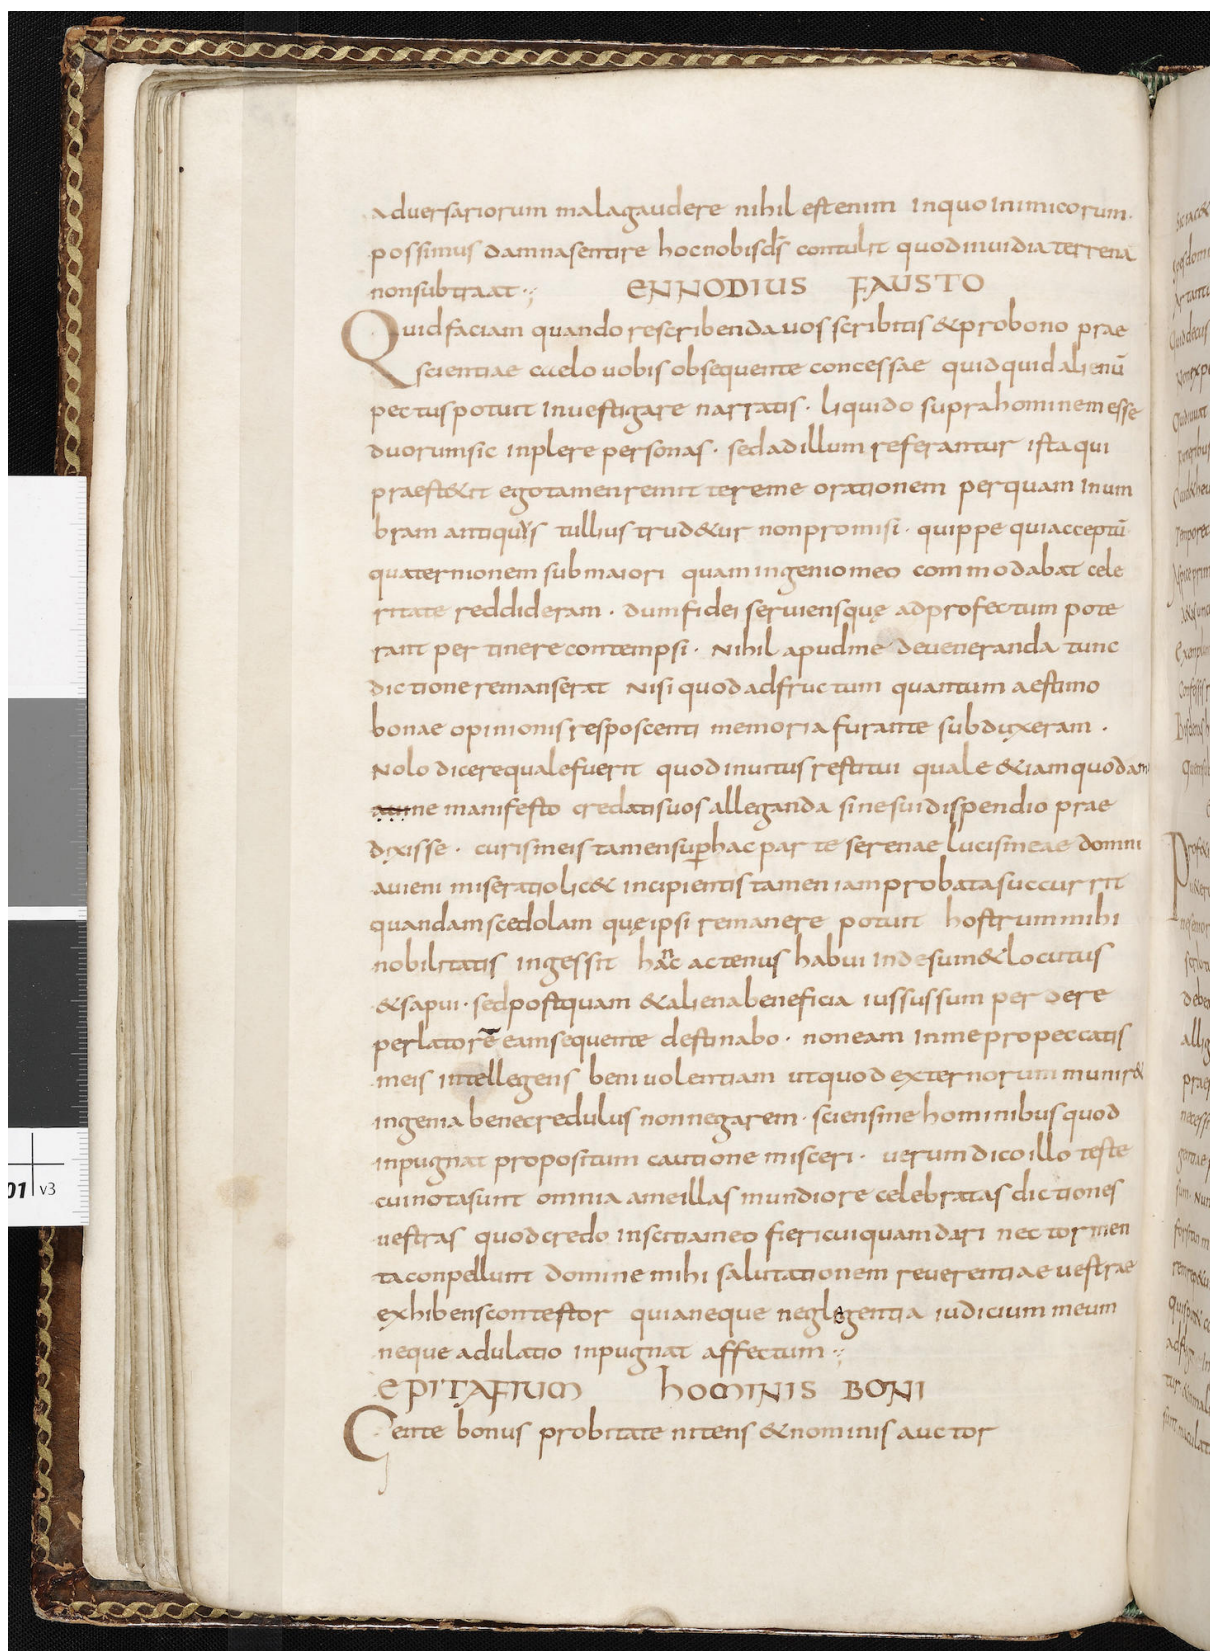 adversariorum malagaudere nihil estenim inquo inimicorum.
possimus damnasentire hocnobisd̄s contulit quodinuidia terrenā
nonsubtraat
ENNODIUS FAUSTO
Quidfaciam quando rescribenda uos scribitis &probono prae
scientiae caelo uobis obsequente concessae quidquid alienū
pectuspotuit investigare narratis · liquido suprahominem esse
duorumsic inplere personas · sedadillum referantur istaqui
praest&it egotamen remit tereme orationem perquam inum
bram antiquus tullius trud&ur nonpromisi · quippe quiacceptū
quaternionem submaiori quamingeniomeo commodabat cele
ritate reddideram · dumfidei seruiensquę adprofectum pote
rant per tinere contempsi · Nihil apudme deveneranda tunc
dictione remanserat Nisi quodadfructum quantum aestimo
bonae opinionis resposcenti memoria furante subduxeram ·
Nolo dicerequalefuerit quodinuitus restitui quale &iamquodam
ne manifesto credatisuos alleganda sinesuidispendio prae
dixisse · curismeis tamensup̄hac parte serenae lucismeae domni
auieni miseratiolic& incipientis tamen iamprobatasuccurrit
quandamscedolam quęipsi remanere potuit hostrummihi
nobilitatis ingessit hanc actenus habui indesum&locutus
&sapui · sedpostquam &alienabeneficia iussussum perdere
perlatorē eamsequente destinabo · noneam inmepropeccatis
meis intellegens beniuolentiam utquod externorum munir&
ingenia benecredulus nonnegarem · sciensme hominibusquod
inpugnat propositum cautione misceri · uerumdicoillo teste
cuinotasunt omnia ameillas mundiore celebratas dictiones
uestras quodcredo inscitiameo fiericuiquamdari nec tormen
taconpellunt domine mihi salutationem reverentiae uestrae
exhibenscontestor quianeque neglegentia iudicium meum
neque adulatio inpugnat affectum
EPITAFIUM HOMINIS BONI
Gente bonus probitate nitens &nominis auctor